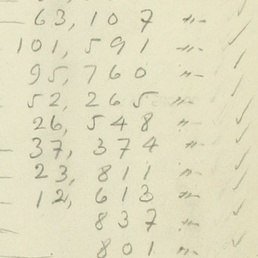 63,107 "-
101,591 "-
95,760 "-
52,265 "-
26,548 "-
37,374 "-
23,811 "-
12,613 "-
837 "-
801 "-